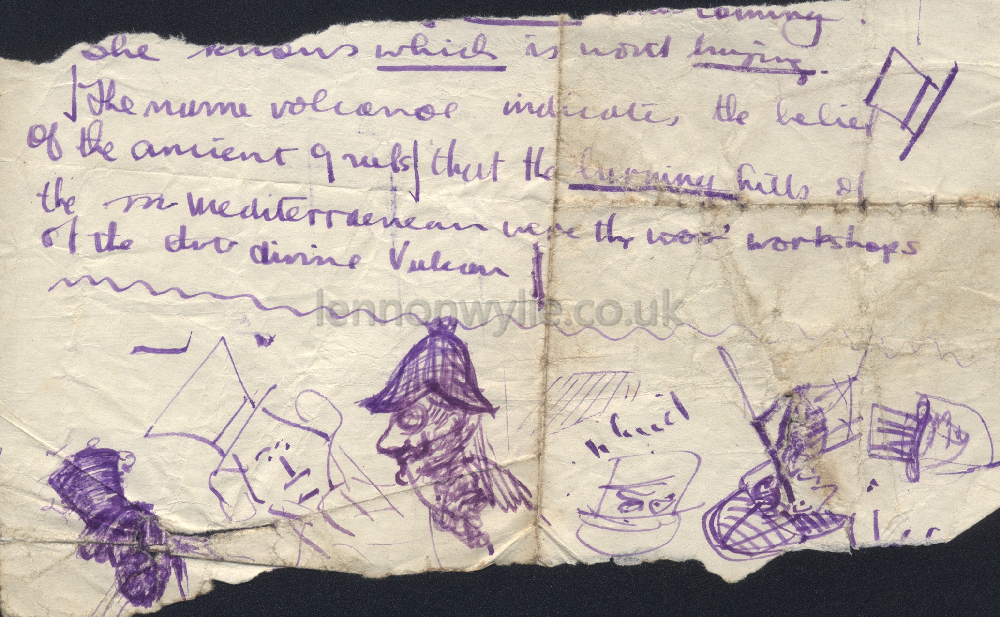 coming.
She knows which is worth buying.
[The name volcanoe indicates the belief
of the ancient greeks] that the burning hills of
the m Mediterraenean were the woo workshops
of the dvv divine Vulcan
lennonwylie.co.uk